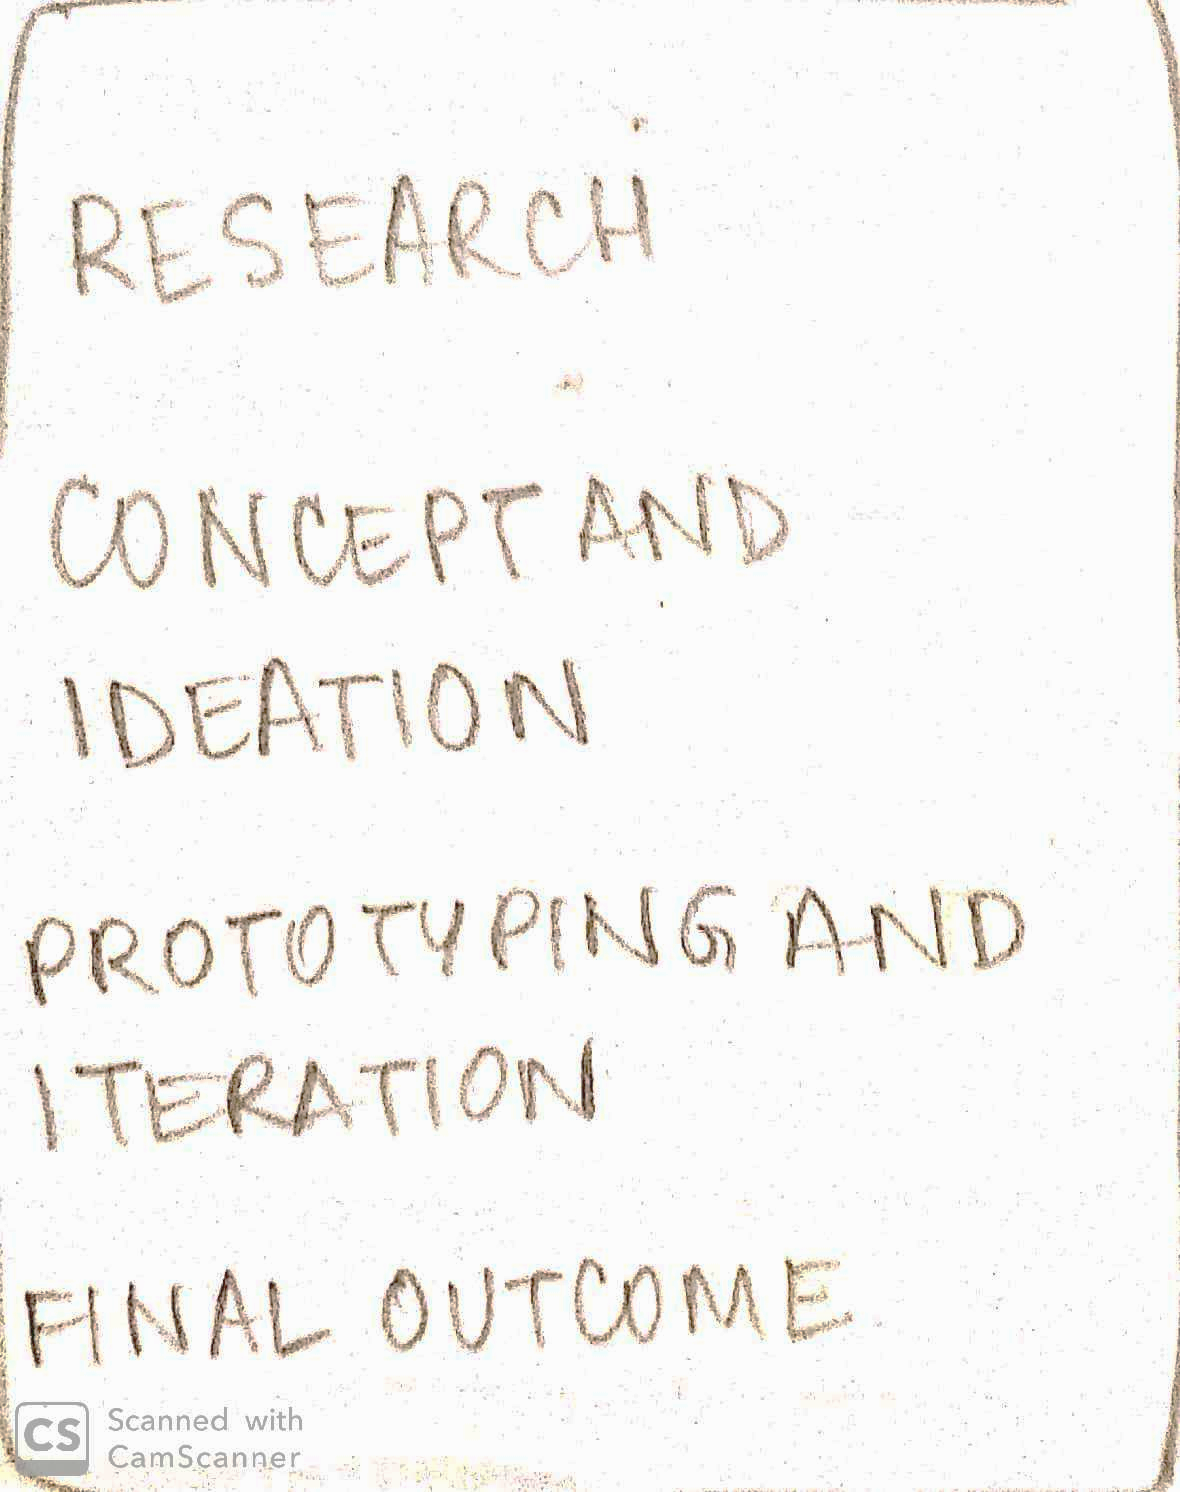 RESEARCH
CONCEPT AND
IDEATION
PROTOTYPING AND
ITERATION
FINAL OUTCOME
CS Scanned with
CamScanner